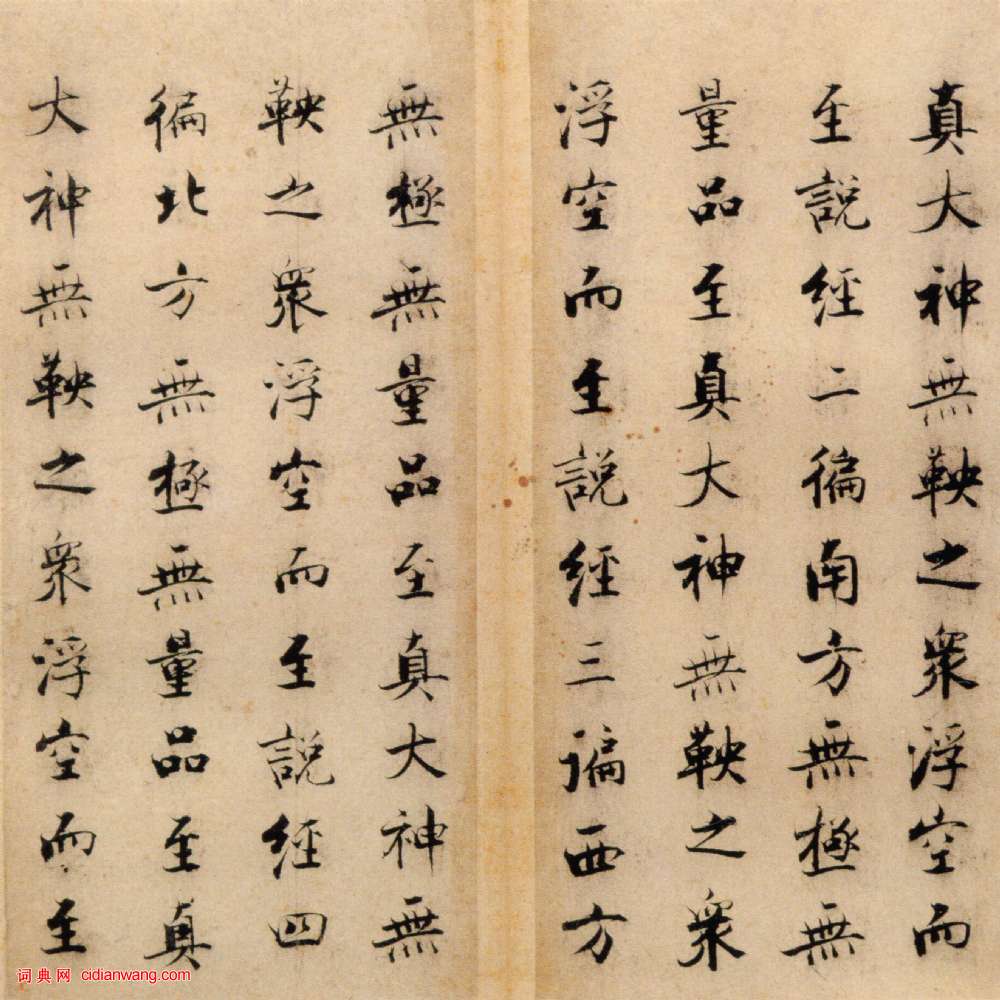 真大神無鞅之衆浮空而
至說經二徧南方無極無
量品至真大神無鞅之衆
浮空而至說經三諞西方
無極無量品至真大神無
鞅之衆浮空而至說經四
徧北方無極無量品至真
大神無鞅之衆浮空而至
词典网 cidianwang.com